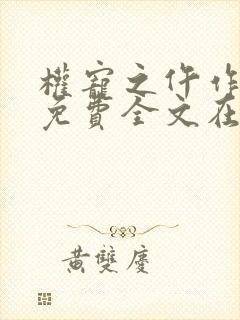 權寵之仵作
免費全文在
黃雙慶